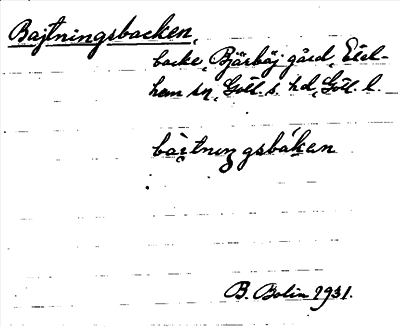 Bajtningsbacken,
backe, Bjärböj gård, Etel-
hem sn, Gotl. s. hd, Gotl. l.
bai̯tnıŋgsbáken
B. Bolin 1931.